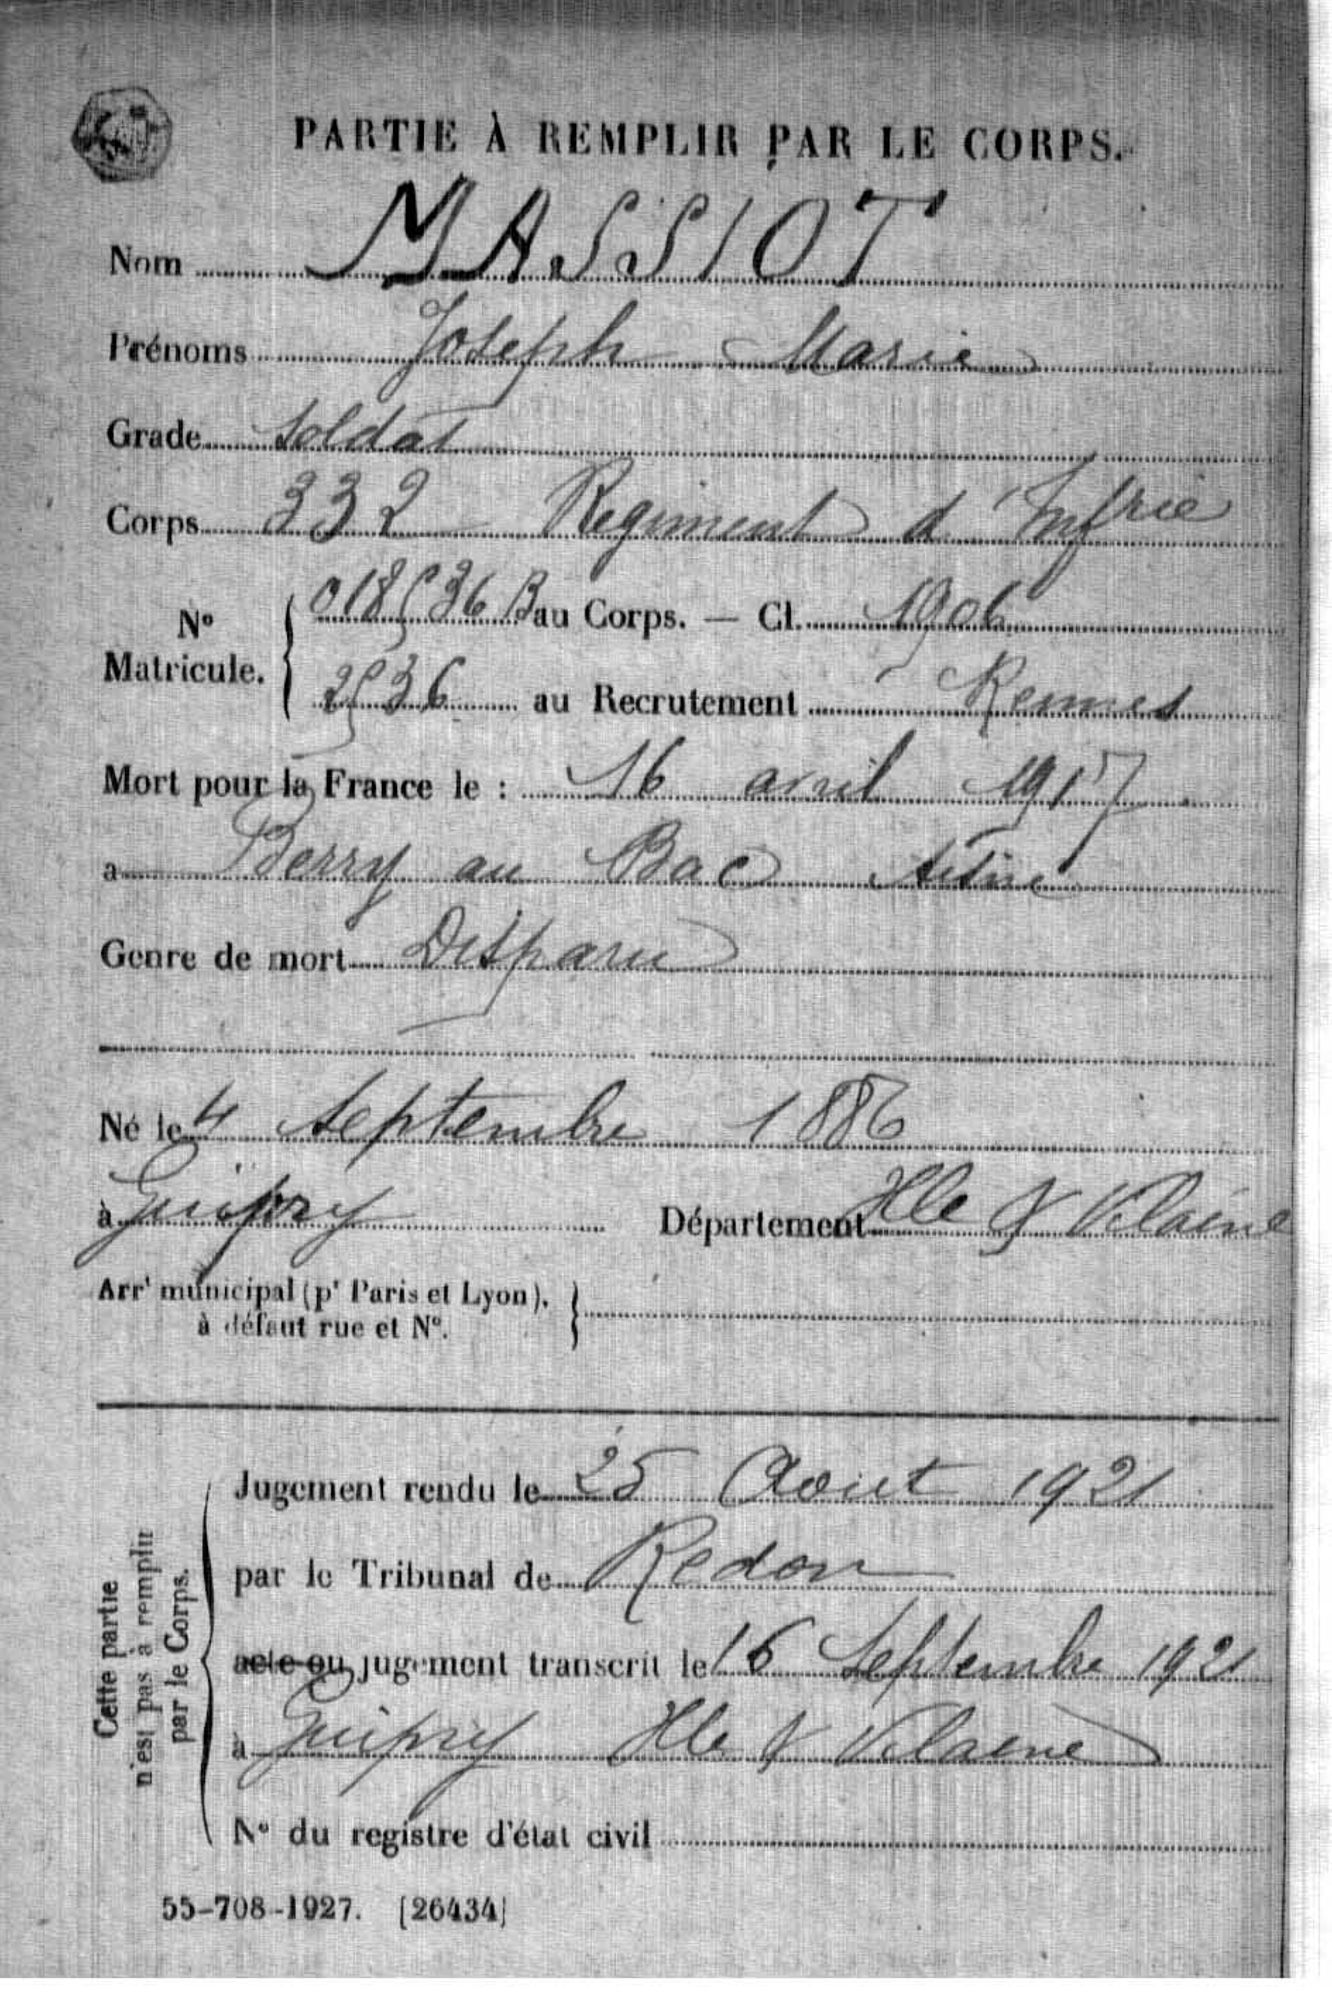 PARTIE À REMPLIR PAR LE CORPS.
Nom MASSIOT
Prénoms Joseph Marie
Grade Soldat
Corps 332 Régiment d'Infrie
N° Matricule. { 018536 B au Corps. — Cl. 1906
2536 au Recrutement Rennes
Mort pour la France le : 16 avril 1917
a Berry au Bac Aisne
Genre de mort Disparu
Né le 4 Septembre 1886
à Guipry Département Ille & Vilaine
Arrt municipal (pr Paris et Lyon), }
à défaut rue et N°.
Cette partie
n'est pas à remplir
par le Corps.
Jugement rendu le 25 Aout 1921
par le Tribunal de Redon
acte ou jugement transcrit le 16 Septembre 1921
à Guipry Ille & Vilaine
N° du registre d'état civil
55-708-1927. [26434]